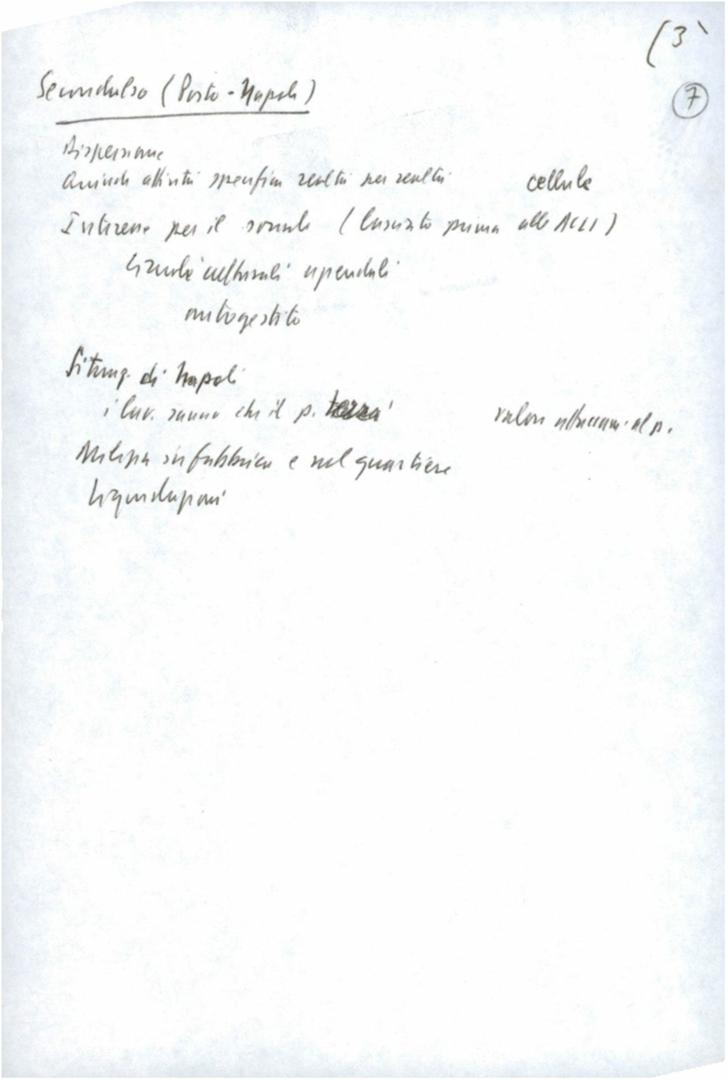 (3
7
(Porto - Napoli)
Dispersione
Quindi attività specifica realtà per realtà cellule
Interesse per il sociale (lasciato prima alle ACLI)
culturali aziendali
autogestito
Situaz. di Napoli
i lav. sanno che il p. valori al p.
in fabbrica e nel quartiere
Liquidazioni